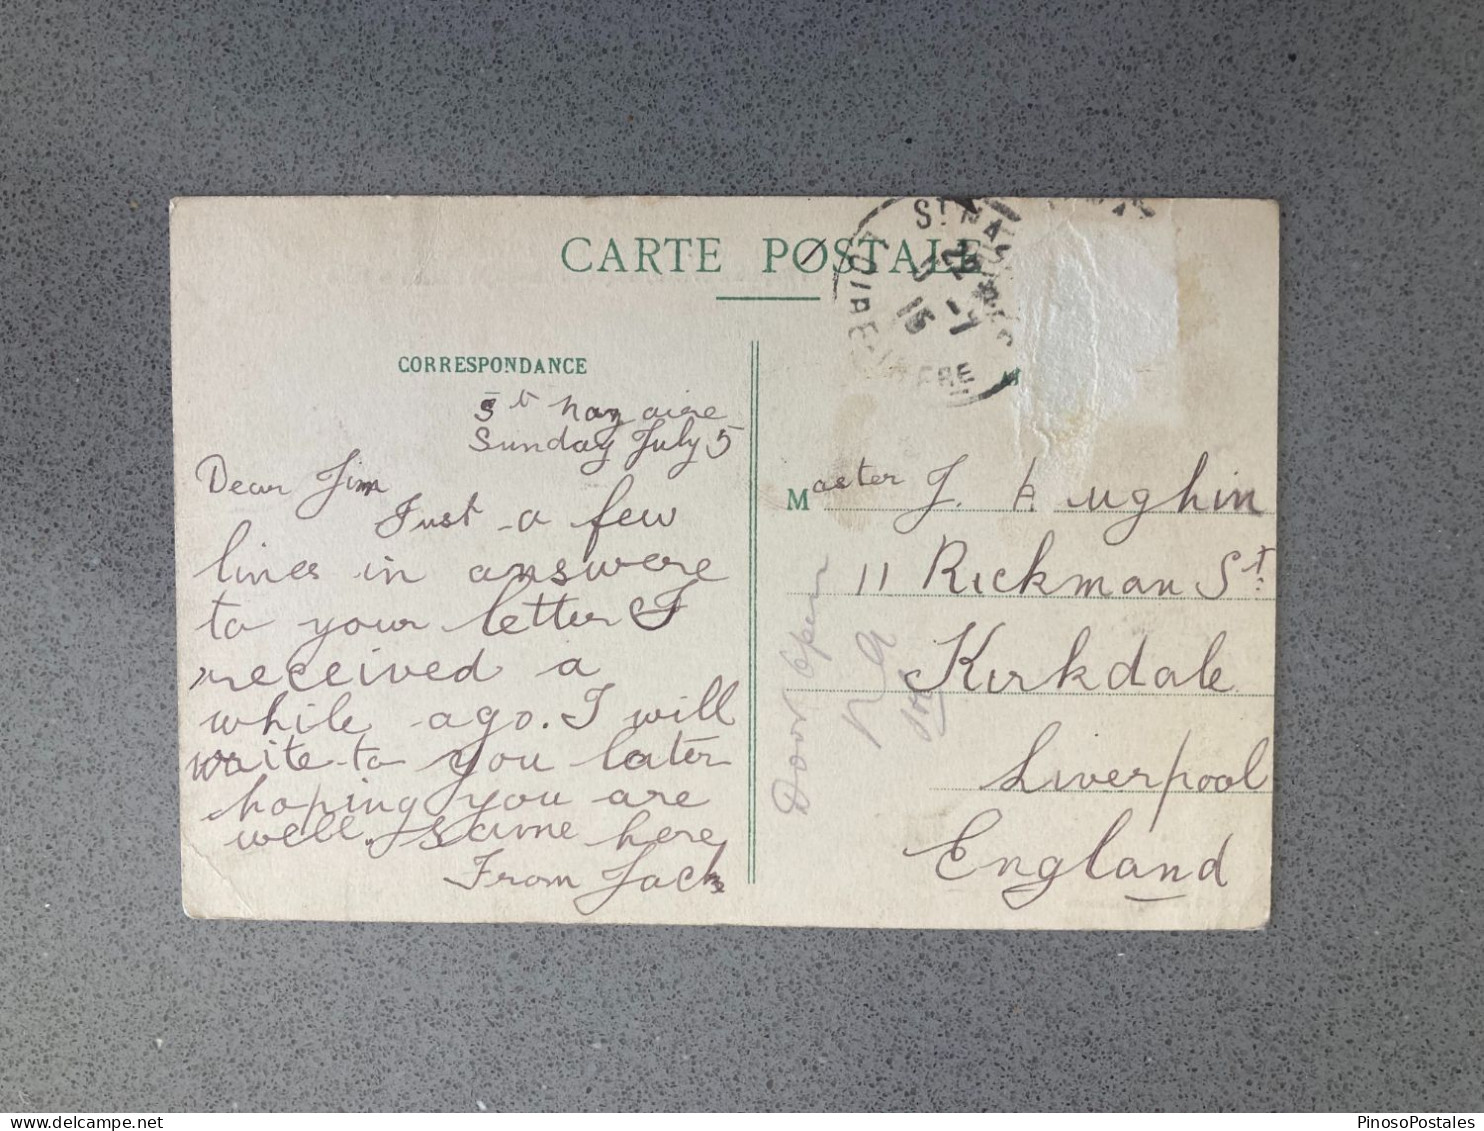 CARTE POSTALE
CORRESPONDANCE
St nazaire
Sunday July 5
Dear Jim
Just a few
lines in answere
to your letter I
received a
while ago. I will
write to you later
hoping you are
well. same here
From Jack
St NAZ
LOIRE-INFRE
2
-7
15
Master J. Hughin
11 Rickman St.
Kirkdale
Liverpool
England
PinosoPostales